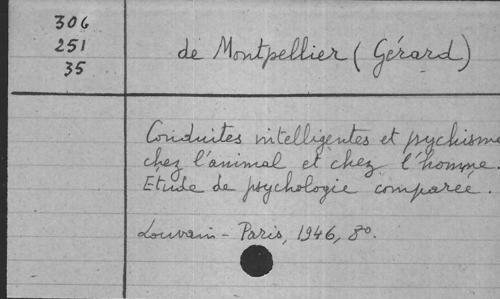 306
251
35
de Montpellier (Gérard)
Conduites intelligentes et psychisme
chez l'animal et chez l'homme.
Etude de psychologie comparée.
Louvain - Paris, 1946, 8º.